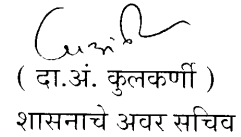 ( दा.अं. कुलकर्णी )
शासनाचे अवर सचिव